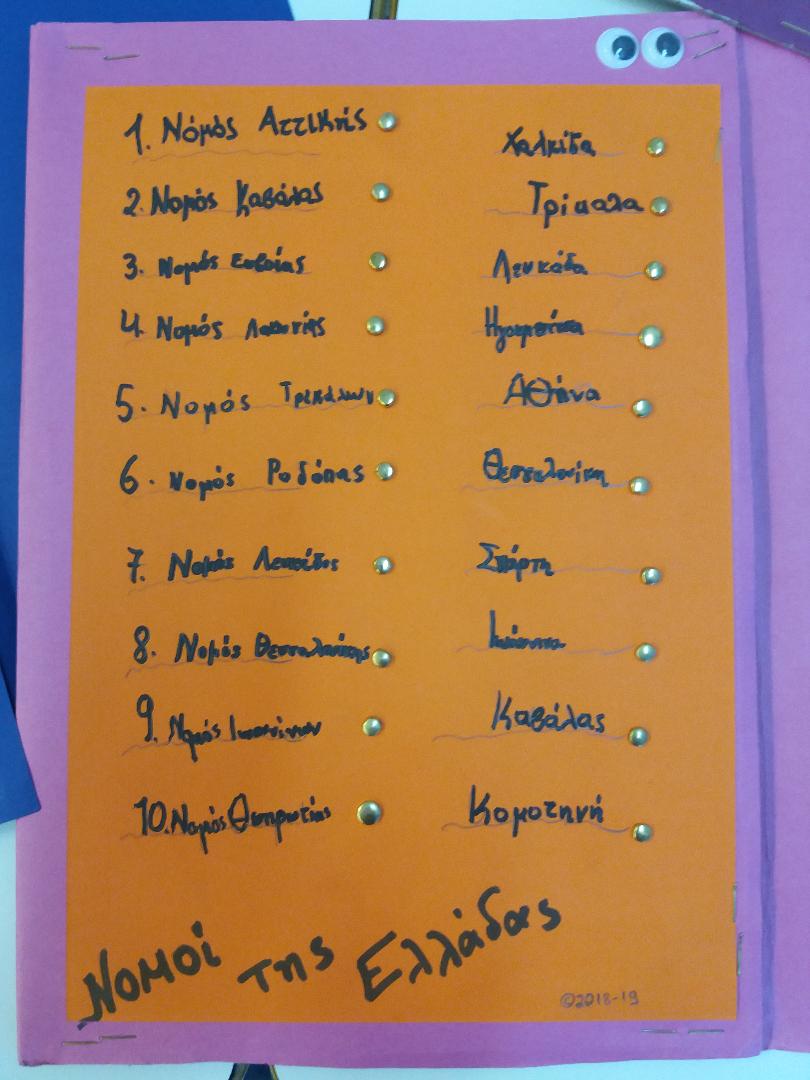 1. Νόμος Αττικής
Χαλκίδα
2. Νομός Καβάλας
Τρίκαλα
3. Νομός Ευβοίας
Λευκάδα
4. Νομός Λακωνίας
Ηγουμενίτσα
5. Νομός Τρικάλων
Αθήνα
6. Νομός Ροδόπης
Θεσσαλονίκη
7. Νομός Λευκάδας
Σπάρτη
8. Νομός Θεσσαλονίκης
Ιωάννινα
9. Νομός Ιωαννίνων
Καβάλας
10. Νομός Θεσπρωτίας
Κομοτηνή
Νομοί της Ελλάδας
©2018-19